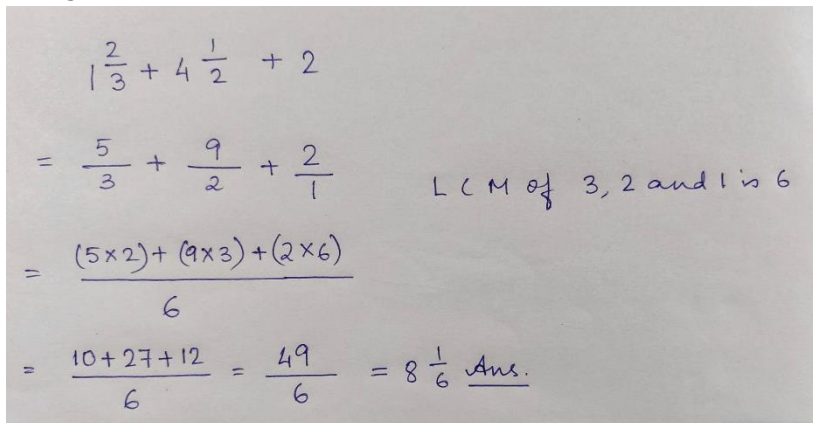 1 2/3 + 4 1/2 + 2
= 5/3 + 9/2 + 2/1 LCM of 3, 2 and 1 is 6
= (5×2)+(9×3)+(2×6) / 6
= 10+27+12 / 6 = 49/6 = 8 1/6 Ans.